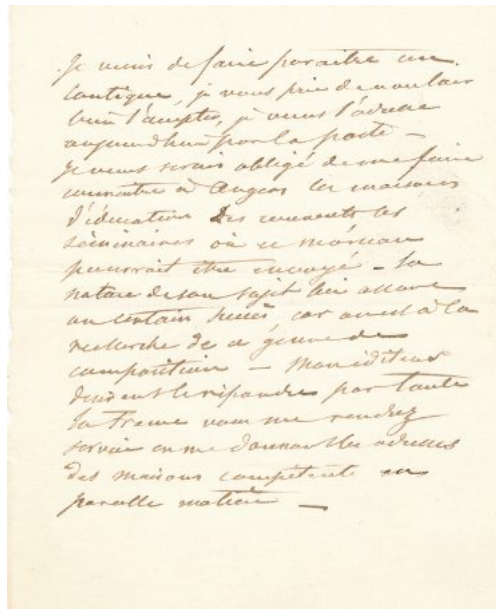 Je viens de faire paraitre un
Cantique, je vous prie de vouloir
bien l'accepter, je vous l'adresse
aujourd'hui par la poste —
Je vous serais obligé de me faire
connaitre à Angers les maisons
d'éducation des couvents les
séminaires où ce morceau
pourrait être envoyé — la
nature de son sujet lui assure
un certain succès, car on est à la
recherche de ce genre de
composition — Mon éditeur
désirant le répandre par toute
la France vous me rendrez
service en me donnant les adresses
des maisons compétentes en
pareille matière —